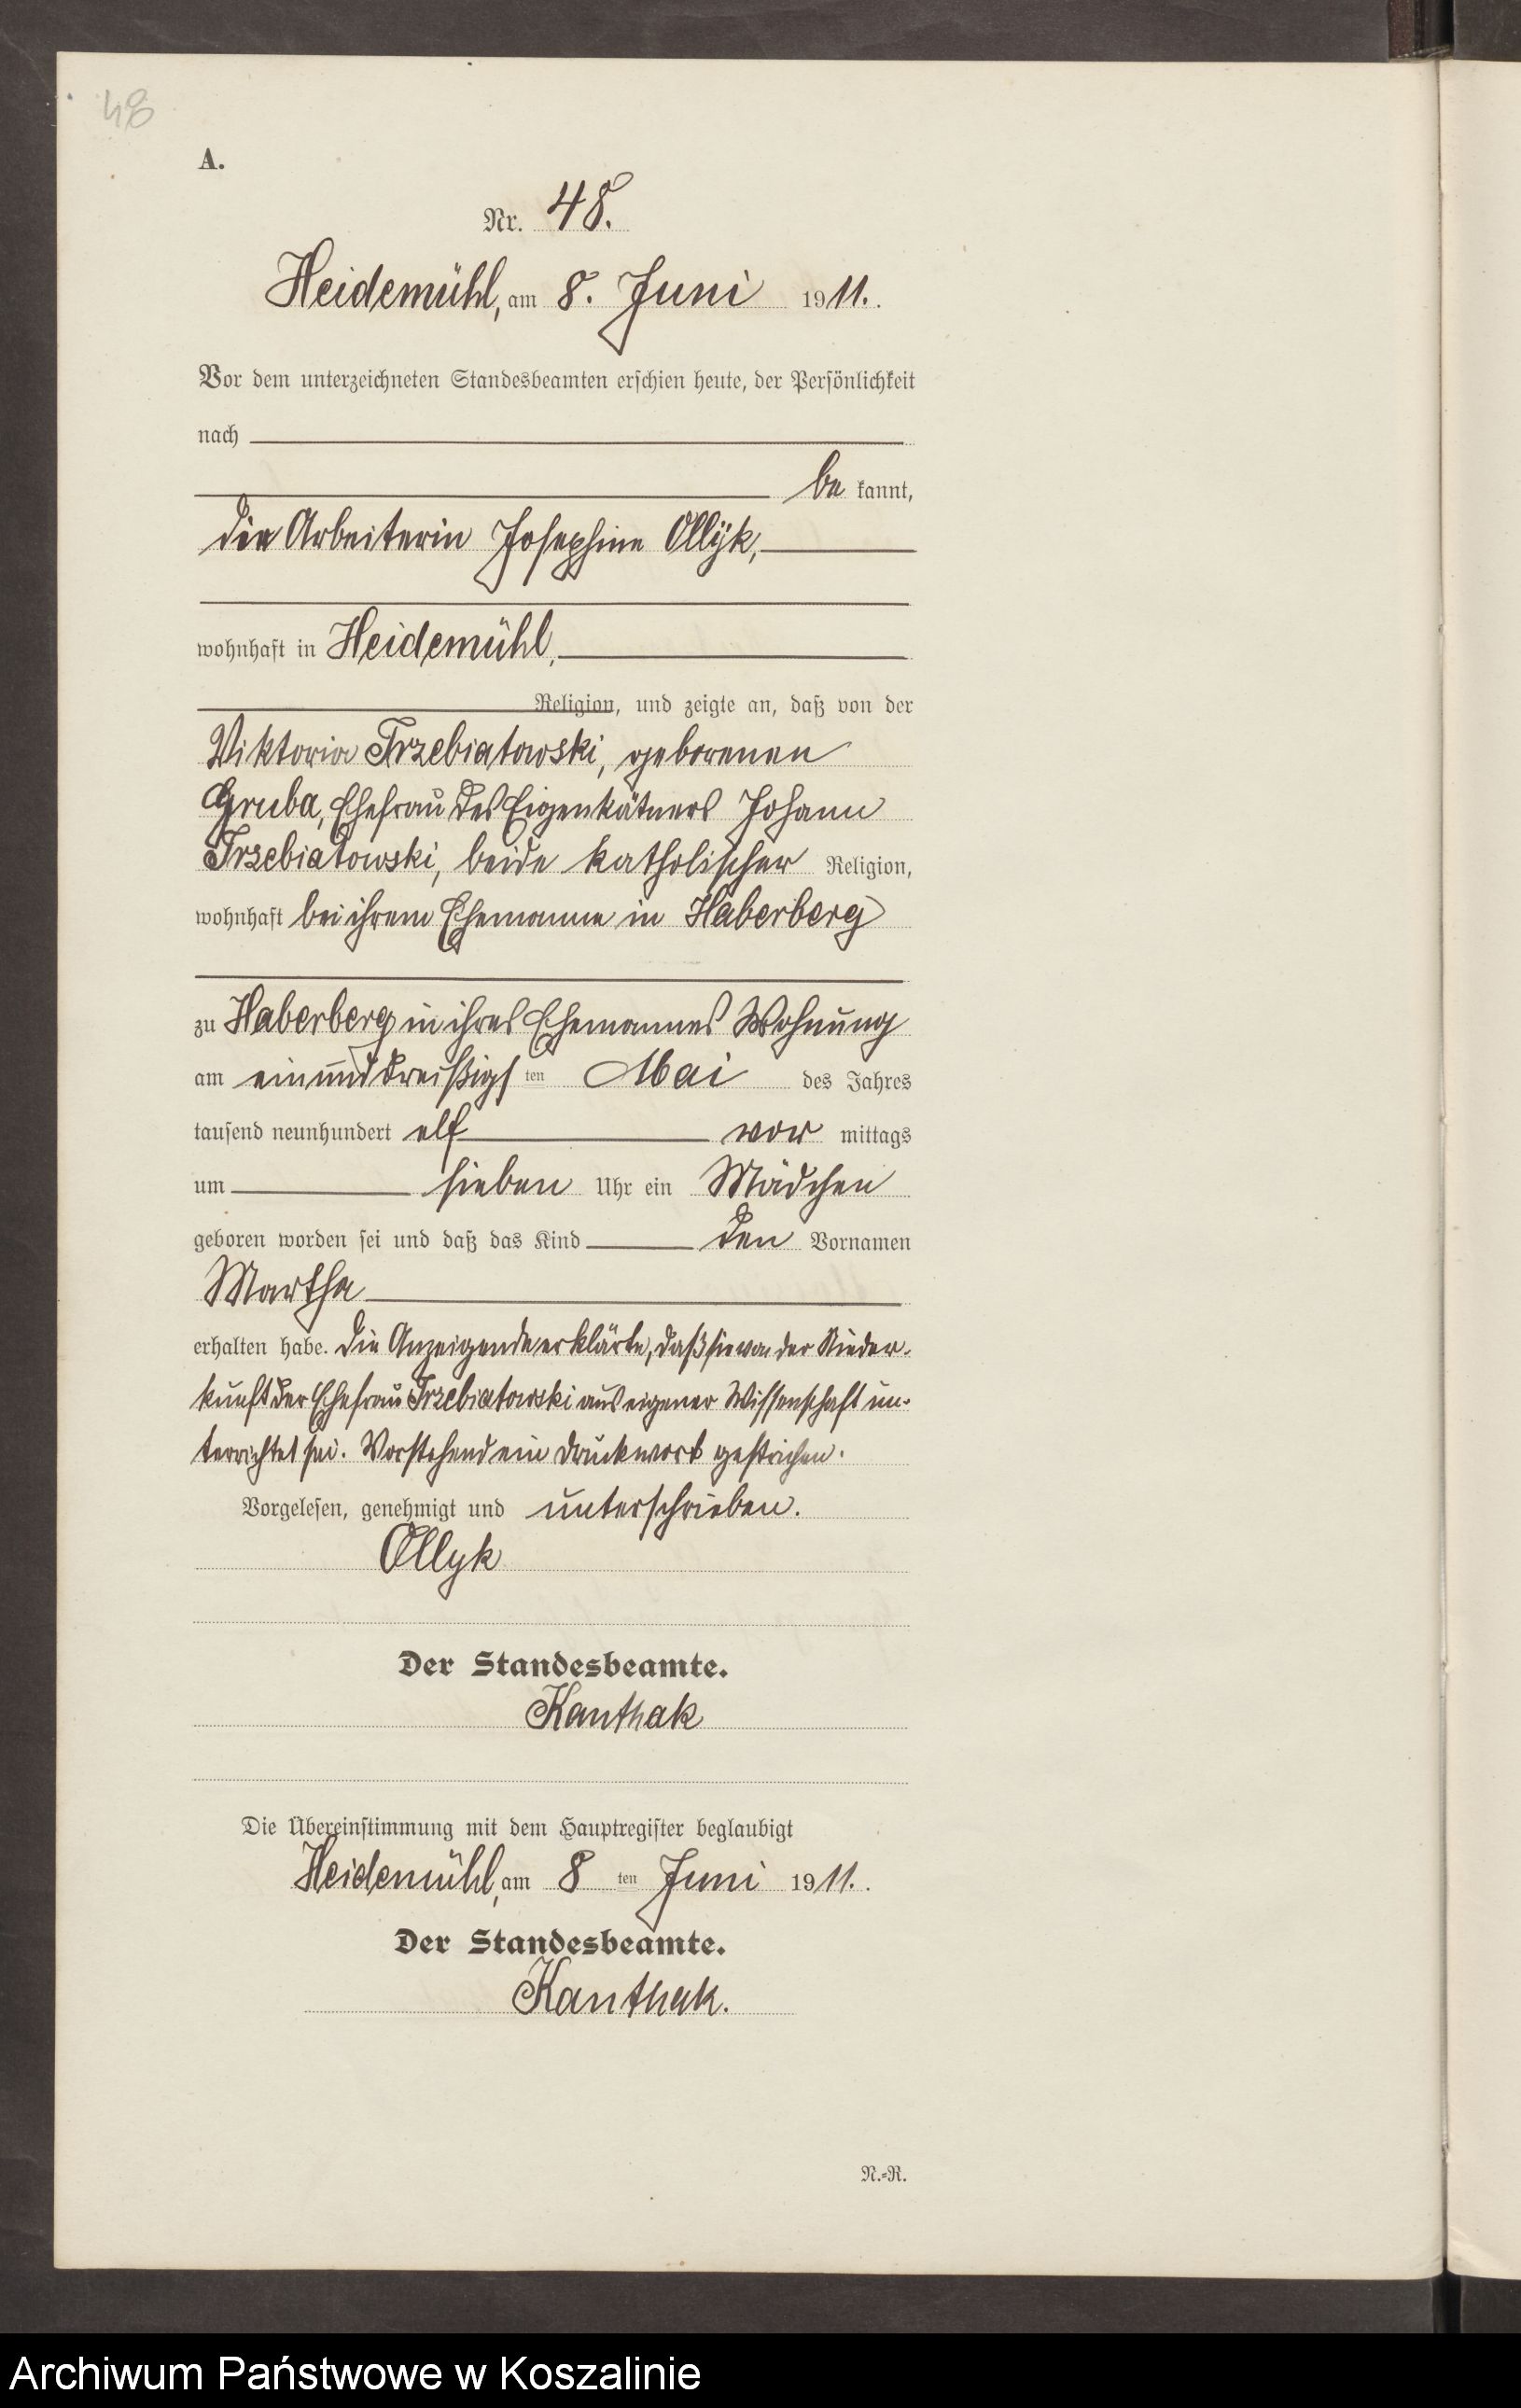 48
A.
Nr. 48.
Heidemühl, am 8. Juni 1911.
Vor dem unterzeichneten Standesbeamten erschien heute, der Persönlichkeit
nach
be kannt,
die Arbeiterin Josephine Ollÿk,
wohnhaft in Heidemühl,
Religion, und zeigte an, daß von der
Viktoria Trzebiatowski, geborenen
Gruba, Ehefrau des Eigenkätners Johann
Trzebiatowski, beide katholischer Religion,
wohnhaft bei ihrem Ehemanne in Haberberg
zu Haberberg in ihres Ehemannes Wohnung
am einunddreißigs ten Mai des Jahres
tausend neunhundert elf vor mittags
um sieben Uhr ein Mädchen
geboren worden sei und daß das Kind den Vornamen
Martha
erhalten habe. Die Anzeigende erklärte, daß sie von der Nieder-
kunft der Ehefrau Trzebiatowski aus eigener Wissenschaft un-
terrichtet sei. Vorstehend ein Druckwort gestrichen.
Vorgelesen, genehmigt und unterschrieben.
Ollyk
Der Standesbeamte.
Kanthak
Die Übereinstimmung mit dem Hauptregister beglaubigt
Heidemühl, am 8 ten Juni 1911.
Der Standesbeamte.
Kanthak.
N.=R.
Archiwum Państwowe w Koszalinie